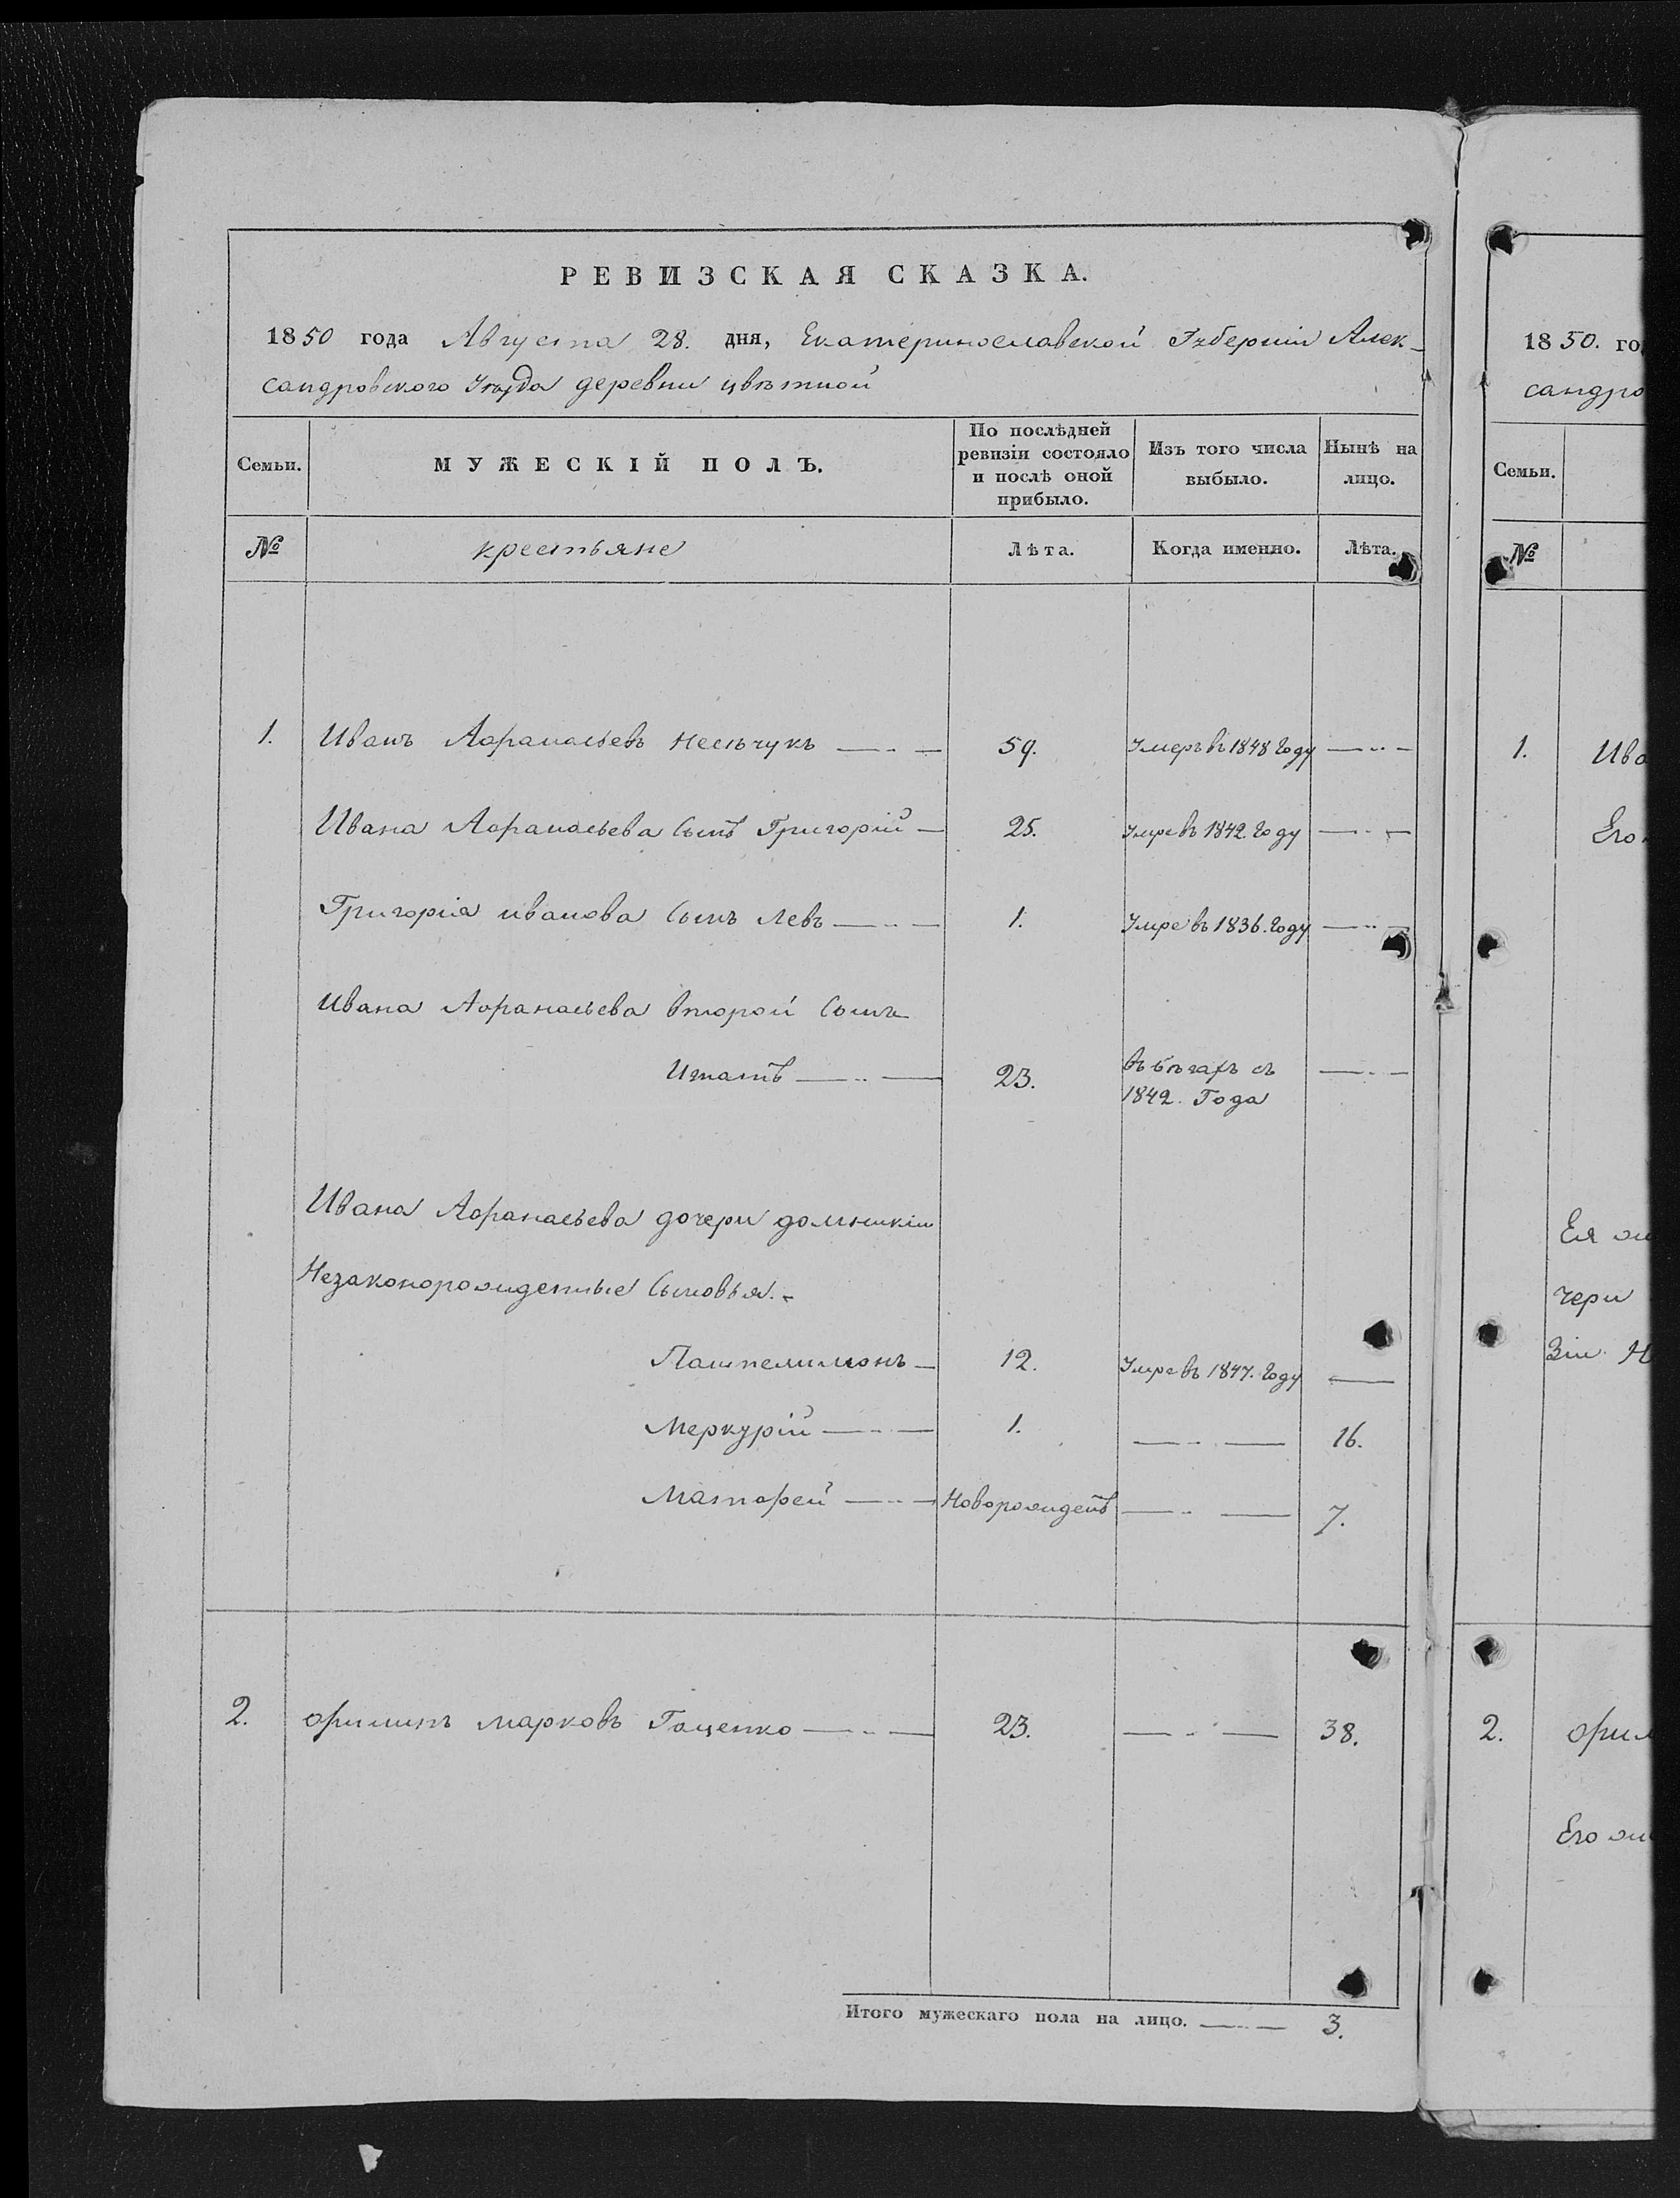 РЕВИЗСКАЯ СКАЗКА.
1850 года Августа 28. дня, Екатеринославской Губерніи Алек-
сандровского Уѣзда деревни цвѣтной
Семьи. МУЖЕСКІЙ ПОЛЪ. По послѣдней ревизіи состояло и послѣ оной прибыло. Изъ того числа выбыло. Нынѣ на лицо.
№ крестьяне Лѣта. Когда именно. Лѣта.
1. Иванъ Афанасьевъ 59. Умеръ въ 1848 Году
Ивана Афанасьева Сынъ Григорій 25. Умре въ 1842. Году
Григорія иванова Сынъ Левъ 1. Умре въ 1836. Году
Ивана Афанасьева второй Сынъ
Игнатъ 23. въ бѣгахъ съ
1842. Года
Ивана Афанасьева дочери домникіи
Незаконорожденные Сыновья.
Пантелимонъ 12. Умре въ 1847. Году
Меркурій 1. 16.
Матфей Новорожденъ 7.
2. филипъ марковъ Гаценко 23. 38.
Итого мужескаго пола на лицо. 3.
1850. го
сандро
Семьи.
№
1. Ива
Его
Ея
чери
зіи Н
2. фил
Его